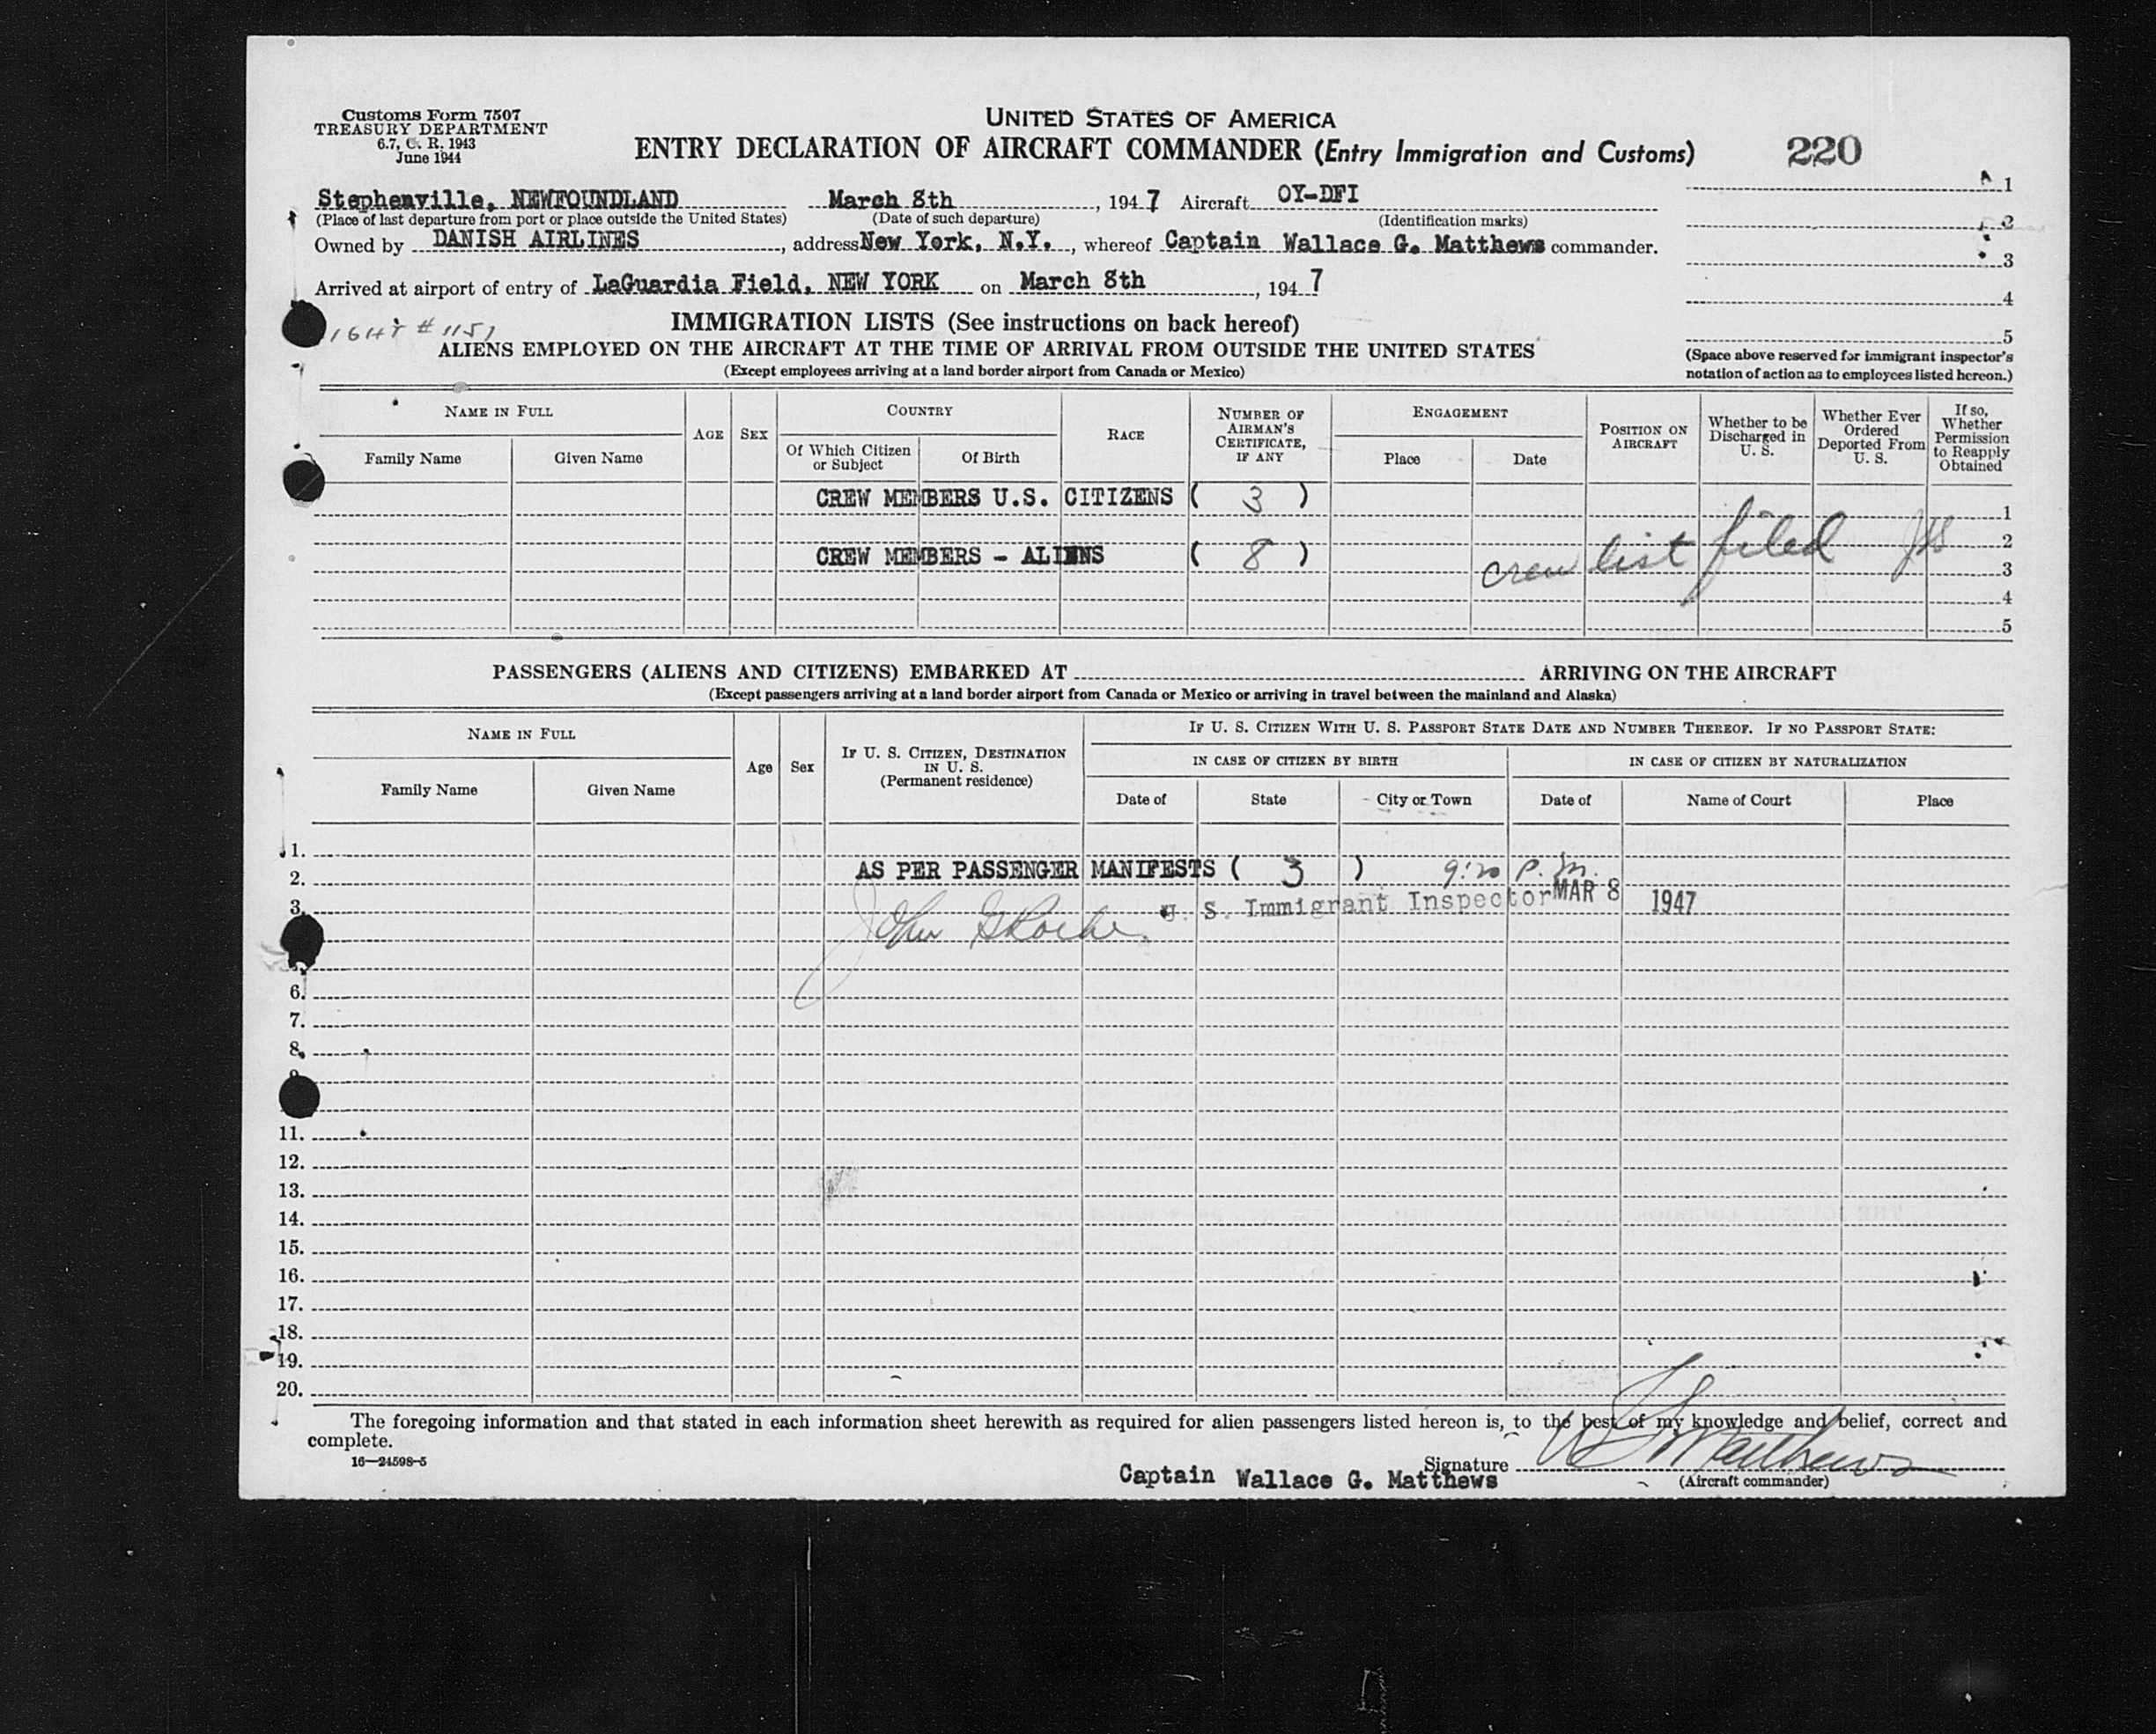 Customs Form 7507
TREASURY DEPARTMENT
6.7, C. R. 1943
June 1944
UNITED STATES OF AMERICA
ENTRY DECLARATION OF AIRCRAFT COMMANDER (Entry Immigration and Customs)
220
Stephenville, NEWFOUNDLAND March 8th, 1947 Aircraft OY-DFI
(Place of last departure from port or place outside the United States) (Date of such departure) (Identification marks)
Owned by DANISH AIRLINES, address New York, N.Y., whereof Captain Wallace G. Matthews commander.
Arrived at airport of entry of LaGuardia Field, NEW YORK on March 8th, 1947
1
2
3
4
5
(Space above reserved for immigrant inspector's
notation of action as to employees listed hereon.)
# 1151
IMMIGRATION LISTS (See instructions on back hereof)
ALIENS EMPLOYED ON THE AIRCRAFT AT THE TIME OF ARRIVAL FROM OUTSIDE THE UNITED STATES
(Except employees arriving at a land border airport from Canada or Mexico)
NAME IN FULL
Family Name
Given Name
AGE
SEX
COUNTRY
Of Which Citizen
or Subject
Of Birth
RACE
NUMBER OF
AIRMAN'S
CERTIFICATE,
IF ANY
ENGAGEMENT
Place
Date
POSITION ON
AIRCRAFT
Whether to be
Discharged in
U. S.
Whether Ever
Ordered
Deported From
U. S.
If so,
Whether
Permission
to Reapply
Obtained
CREW MEMBERS U.S. CITIZENS ( 3 )
1
2
CREW MEMBERS - ALIENS ( 8 )
crew list filed
3
4
5
PASSENGERS (ALIENS AND CITIZENS) EMBARKED AT ARRIVING ON THE AIRCRAFT
(Except passengers arriving at a land border airport from Canada or Mexico or arriving in travel between the mainland and Alaska)
NAME IN FULL
Family Name
Given Name
Age
Sex
IF U. S. CITIZEN, DESTINATION
IN U. S.
(Permanent residence)
IF U. S. CITIZEN WITH U. S. PASSPORT STATE DATE AND NUMBER THEREOF. IF NO PASSPORT STATE:
IN CASE OF CITIZEN BY BIRTH
IN CASE OF CITIZEN BY NATURALIZATION
Date of
State
City or Town
Date of
Name of Court
Place
1.
AS PER PASSENGER MANIFESTS ( 3 ) 9:20 P. M.
2.
U. S. Immigrant Inspector MAR 8 1947
3.
John
6.
7.
8.
11.
12.
13.
14.
15.
16.
17.
18.
19.
20.
The foregoing information and that stated in each information sheet herewith as required for alien passengers listed hereon is, to the best of my knowledge and belief, correct and
complete.
16—24598-5
Signature W G Matthews
Captain Wallace G. Matthews
(Aircraft commander)